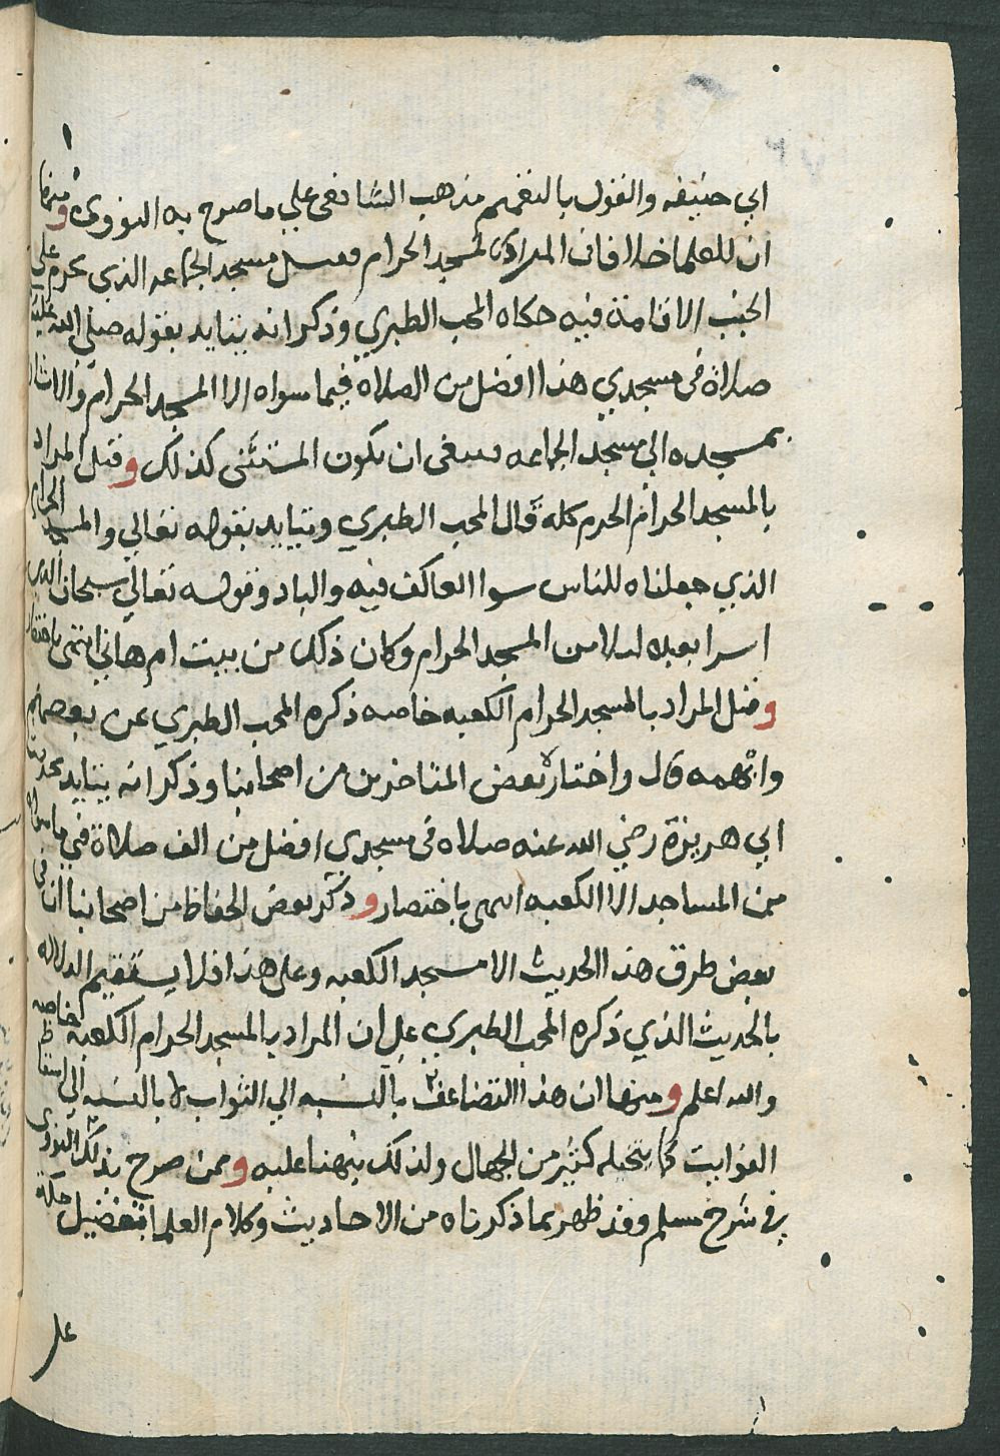 ابي حنيفه والقول بالتعميم مذهب الشافعي علي ما صرح به النووي ومنها
ان للعلما خلافا في المراد بالمسجد الحرام فقيل مسجد الجماعه الذي يحرم علي
الجنب الاقامة فيه حكاه المحب الطبري وذكر انه يتايد بقوله صلي الله عليه
صلاة في مسجدي هذا افضل من الصلاه فيما سواه الا المسجد الحرام والاشار
بمسجده الي مسجد الجماعه فينبغي ان يكون المستثنى كذلك وقيل المراد
بالمسجد الحرام الحرم كله قال المحب الطبري ويتايد بقوله تعالي والمسجد الحرام
الذي جعلناه للناس سوا العاكف فيه والباد وقوله تعالي سبحان الذي
اسرا بعبده ليلا من المسجد الحرام وكان ذلك من بيت ام هاني انتهى باختصار
وقيل المراد بالمسجد الحرام الكعبه خاصه ذكره المحب الطبري عن بعضهم
وابهمه قال واختاره بعض المتاخرين من اصحابنا وذكر انه يتايد بحديث
ابي هريرة رضي الله عنه صلاه في مسجدي افضل من الف صلاة في ما سواه
من المساجد الا الكعبه انتهى باختصار وذكر بعض الحفاظ من اصحابنا ان في
بعض طرق هذا الحديث الا مسجد الكعبه وعلى هذا فلا يستقيم الدلاله
بالحديث الذي ذكره المحب الطبري علي ان المراد بالمسجد الحرام الكعبه خاصه
والله اعلم ومنها ان هذا التضاعف بالنسبه الي الثواب لا بالنسبه الي اسقاط
الفوايت كما يتخيله كثير من الجهال ولذلك نبهنا عليه وممن صرح بذلك النووي
في شرح مسلم وقد ظهر بما ذكرناه من الاحاديث وكلام العلما بتفضيل مكة
على